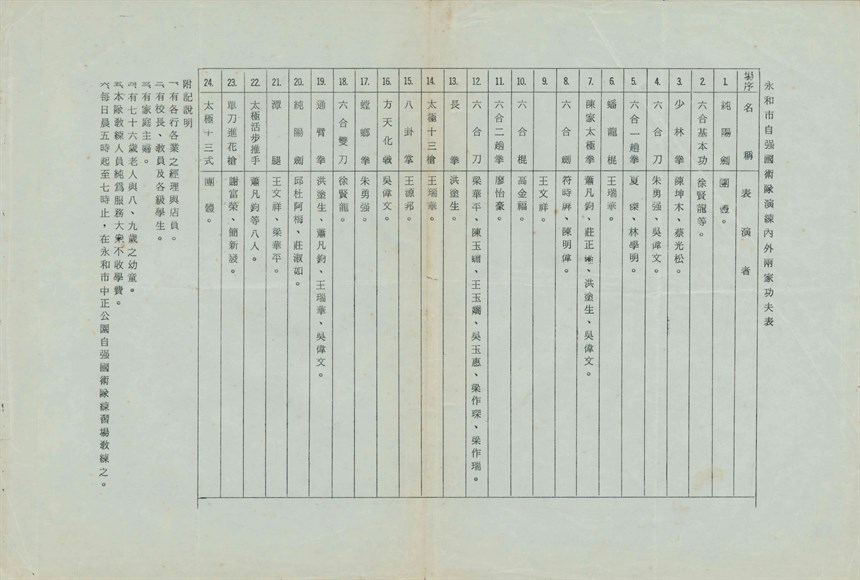 永和市自强國術隊演練內外兩家功夫表
場序 名稱 表演者
1. 純陽劍 團體。
2. 六合基本功 徐賢龍等。
3. 少林拳 陳坤木、蔡光松。
4. 六合刀 朱勇强、吳偉文。
5. 六合一趟拳 夏、林學明。
6. 蟠龍棍 王瑞華。
7. 陳家太極拳 蕭凡鈞、莊正、洪塗生、吳偉文。
8. 六合劍 符時屏、陳明偉。
9. 王文祥。
10. 六合棍 高金福。
11. 六合二趟拳 廖怡豪。
12. 六合刀 梁華平、陳玉、王玉嫺、吳玉惠、梁作琛、梁作瑞。
13. 長拳 洪塗生。
14. 太極十三槍 王瑞華。
15. 八卦掌 王諒邦。
16. 方天化戟 吳偉文。
17. 螳螂拳 朱勇强。
18. 六合雙刀 徐賢龍。
19. 通臂拳 洪塗生、蕭凡鈞、王瑞華、吳偉文。
20. 純陽劍 邱杜阿梅、莊淑如。
21. 潭腿 王文祥、梁華平。
22. 太極活步推手 蕭凡鈞等八人。
23. 單刀進花槍 謝富榮、簡新。
24. 太極十三式 團體。
附記說明
一、有各行各業之經理與店員。
二、有校長、教員及各級學生。
三、有家庭主婦。
四、有七十六歲老人與八、九歲之幼童。
五、本隊教練人員純爲服務大衆不收學費。
六、每日晨五時起至七時止，在永和市中正公園自强國術隊練習場教練之。